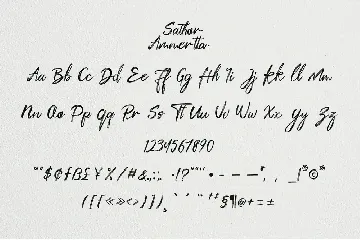 Sathor
Ammertta
Aa Bb Cc Dd Ee Ff Gg Hh Ii Jj Kk Ll Mm
Nn Oo Pp Qq Rr Ss Tt Uu Vv Ww Xx Yy Zz
1234567890
$¢ƒß£¥%/#&,.:;. ·!?
_|®©
({[«»<>]})
§¶@+=±